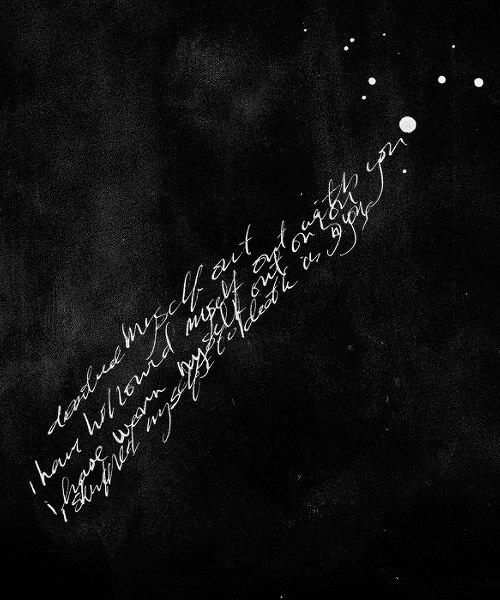 myself out
i have hollowed myself out with you
i have worn myself out on you
myself to death in you